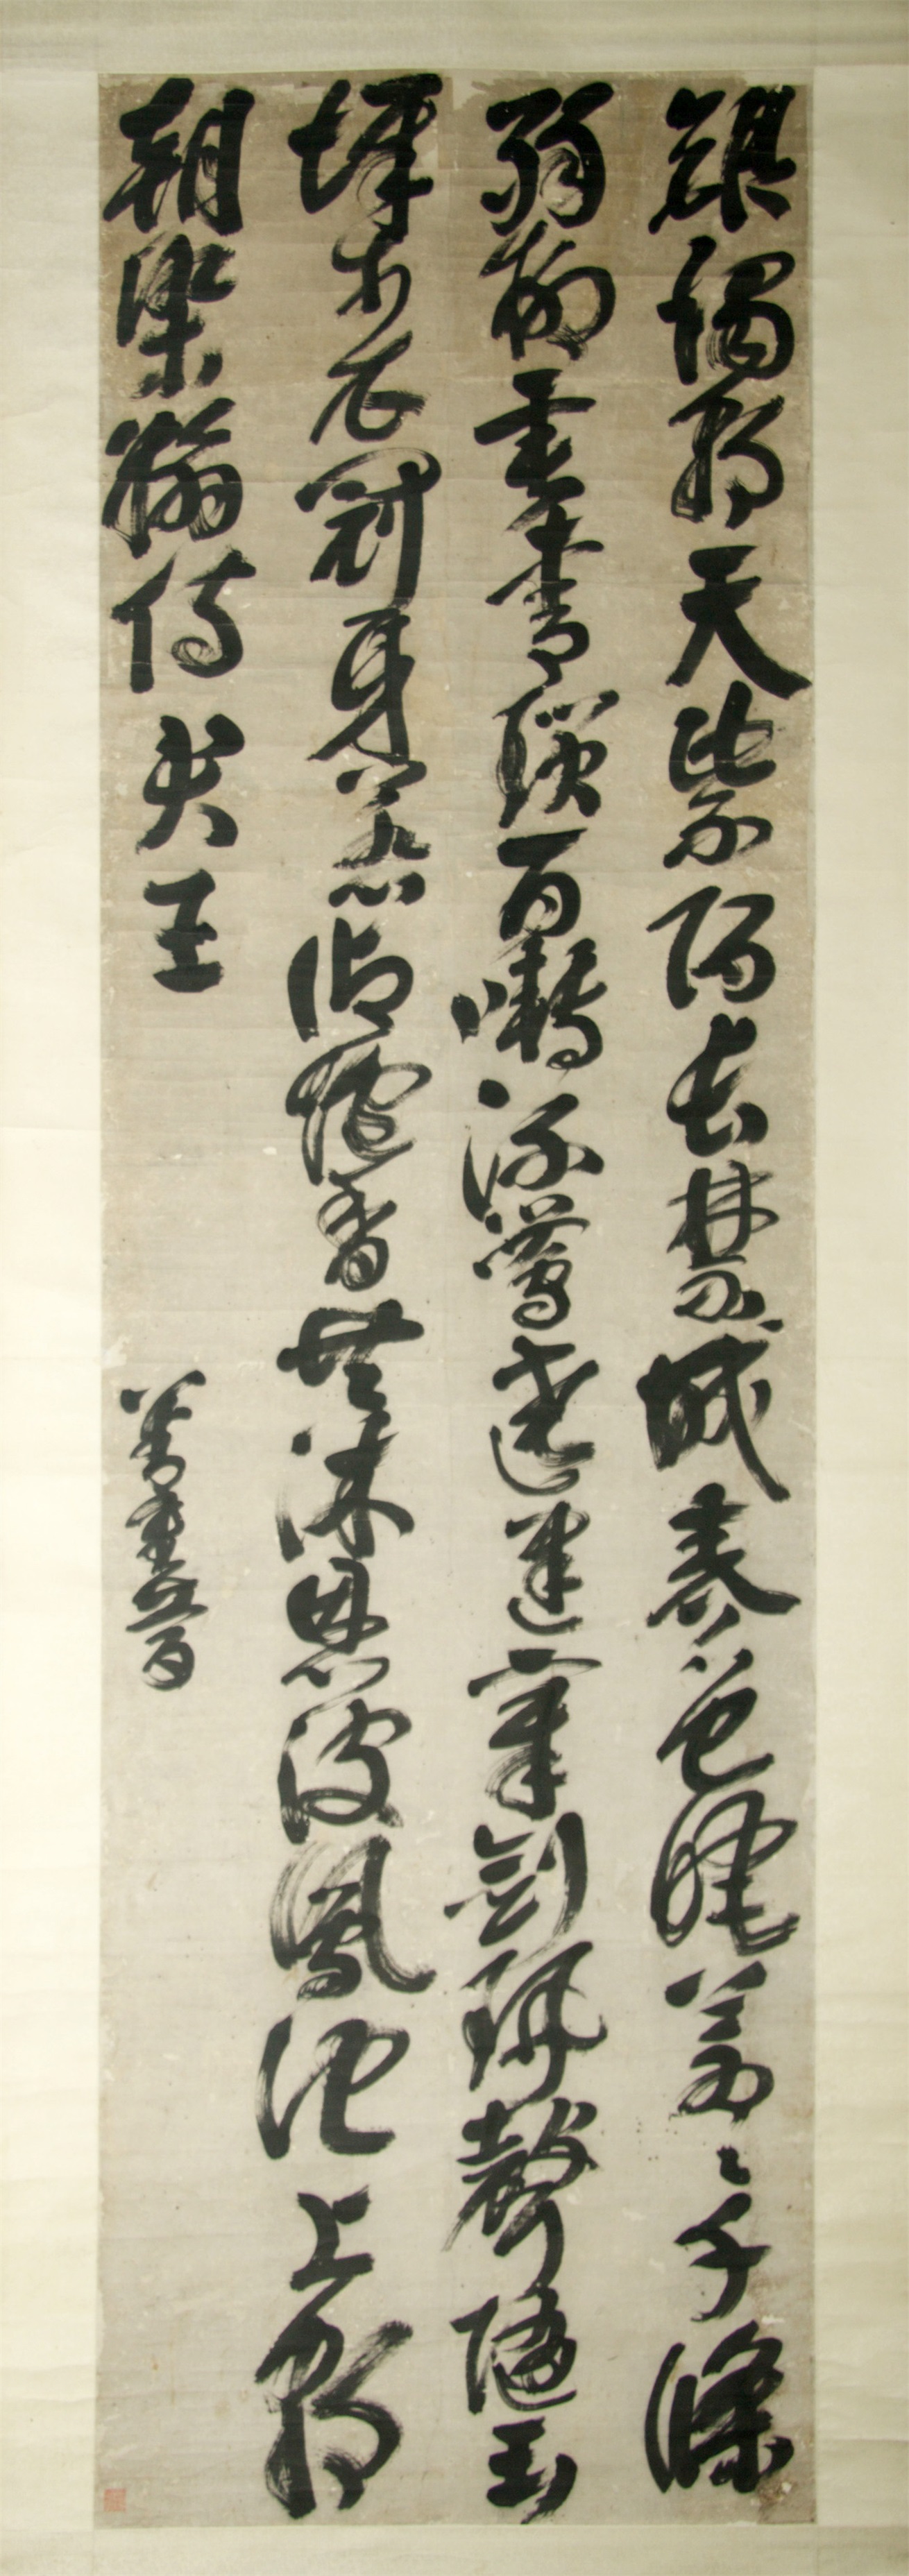 銀燭朝天紫陌長禁城春色曉蒼〻千條
弱柳垂青瑣百囀流鶯遶建章劍珮聲隨玉
墀步衣冠身惹御爐香共沐恩波鳳池上朝
朝染翰侍君王